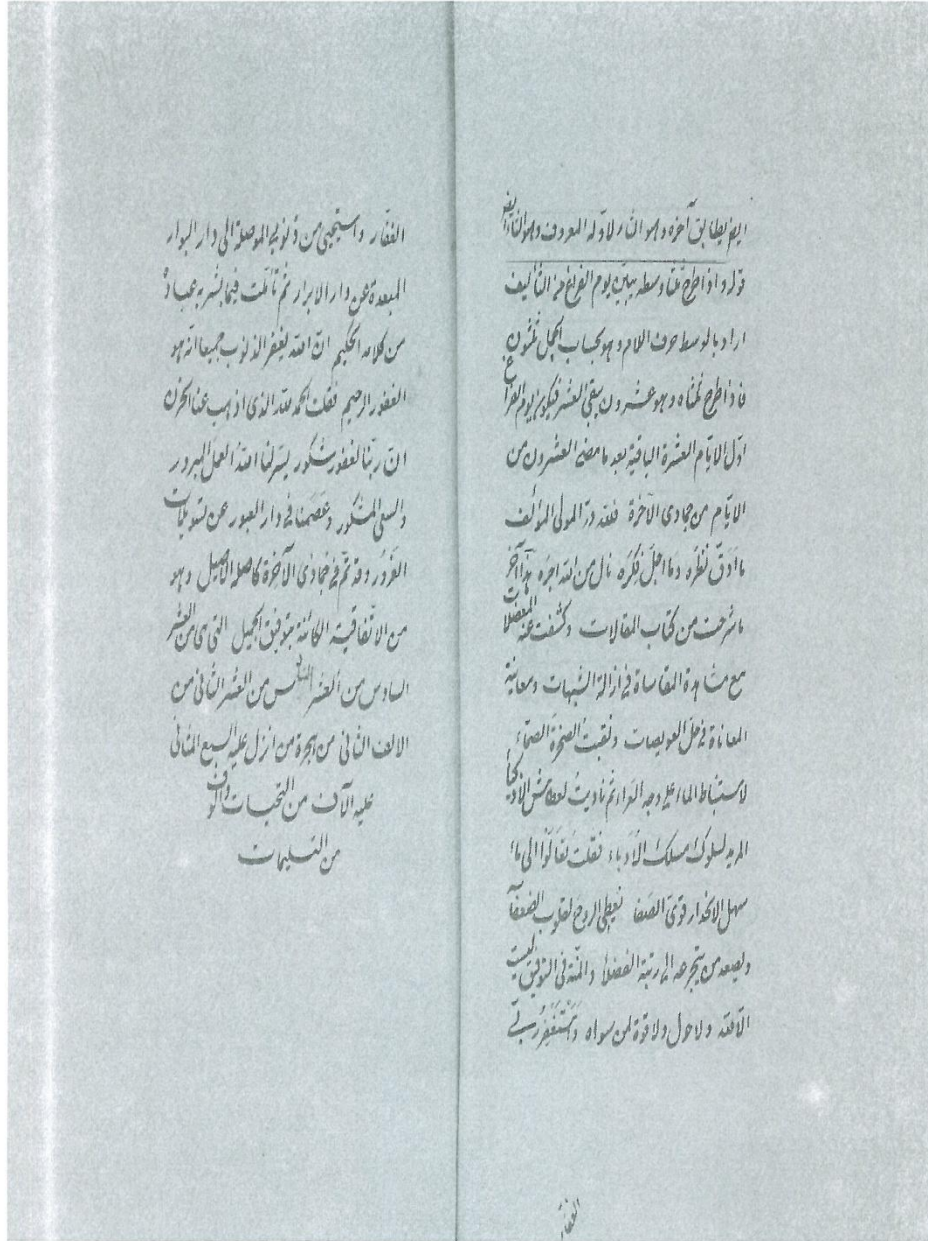 ايض يطابق آخره وهو الثار لاوله المعروف وهو الثاء ايض
قوله واذا طرح ثلثا وسطه يبين يوم الفراغ من التأليف
اراد بالوسط حرف اللام وهو بحساب الجمل ثلثون
فاذا طرح ثلثاه وهو عشرون يبقى العشر فيكون يوم الفراغ
اول الايام العشرة الباقية بعد ما مضى العشرون من
الايام من جمادى الآخرة فلله در المولى المؤلف
ما ادق نظره وما اجل فكره نال من الله اجره هذا آخر
ما شرحت من كتاب المقالات وكشفت عنه المعضلات
مع مشاهدة المقاساة في ازالة الشبهات ومعاينة
المعاناة في حل العويصات ونقبت الصخرة الصماء
لاستنباط الماء على وجه ثم ناديت لعطاش الاذكيا
المريد لسلوك مسلك الادباء فقلت تعالوا الى ماء
سهل الانحدار قوى الصفا يعطى الروح لقلوب الضعفاء
ويصعد من يتجرعه الى رتبة الفضلاء والمنة في التوفيق ليست
الا لله ولا حول ولا قوة لمن سواه واستغفر ربى
الغفار
الغفار واستحيى من ذنوبى الموصلة الى دار البوار
المبعدة عن دار الابرار ثم تأملت فيما بشر به عباده
من كلامه الحكيم ان الله يغفر الذنوب جميعا انه هو
الغفور الرحيم فقلت الحمد لله الذى اذهب عنا الحزن
ان ربنا لغفور شكور يسر لنا الله العمل المبرور
والسعى المشكور وعصمنا في دار العبور عن تسويلات
الغرور وقد تم في جمادى الآخرة كاصله الاصيل وهو
من الاتفاقية الكائنة بتوفيق الجميل التى هى من العشر
السادس من العشر من العشر الثانى من
الالف الثانى من هجرة من انزل عليه السبع المثانى
عليه الآف من التحيات والوف
من التسليمات